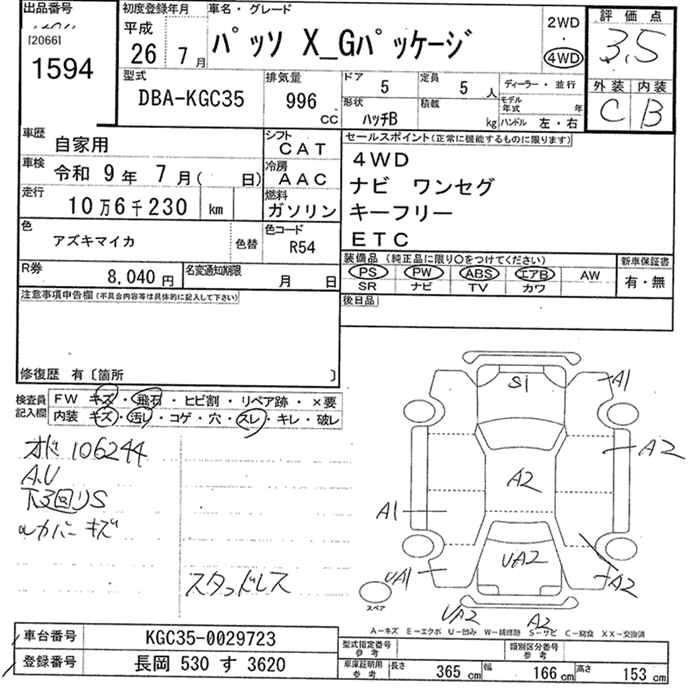 出品番号
[2066]
1594
初度登録年月
平成
26年 7月
車名・グレード
パッソ X_Gパッケージ
2WD
・
4WD
評価点
3.5
外装 内装
C B
型式
DBA-KGC35
排気量
996
cc
ドア
5
定員
5人
ディーラー・並行
形状
ハッチB
積載
kg
モデル年式 年
ハンドル 左・右
車歴
自家用
シフト
CAT
車検
令和 9年 7月( 日)
冷房
AAC
走行
10万6千230 km
燃料
ガソリン
色
アズキマイカ
色替
色コード
R54
R券
8,040円
名変通知期限
月 日
セールスポイント(正常に機能するものに限ります)
4WD
ナビ ワンセグ
キーフリー
ETC
装備品(純正品に限り○をつけてください)
PS PW ABS エアB AW
SR ナビ TV カワ
新車保証書
有・無
後日品
注意事項申告欄(不具合内容等は具体的に記入して下さい)
修復歴 有〔箇所 〕
検査員記入欄
FW キズ・飛石・ヒビ割・リペア跡・×要
内装 キズ・汚レ・コゲ・穴・スレ・キレ・破レ
オド 106244
A.U
下回りS
ルカバーキズ
スタッドレス
S1
A1
A2
A2
A1
UA1
UA2
A2
UA2
A2
スペア
A-キズ E-エクボ U-凹み W-補修跡 S-サビ C-腐食 XX-交換済
車台番号
KGC35-0029723
登録番号
長岡 530 す 3620
型式指定番号
参考
類別区分番号
参考
車庫証明用
参考
長さ 365cm 幅 166cm 高さ 153cm